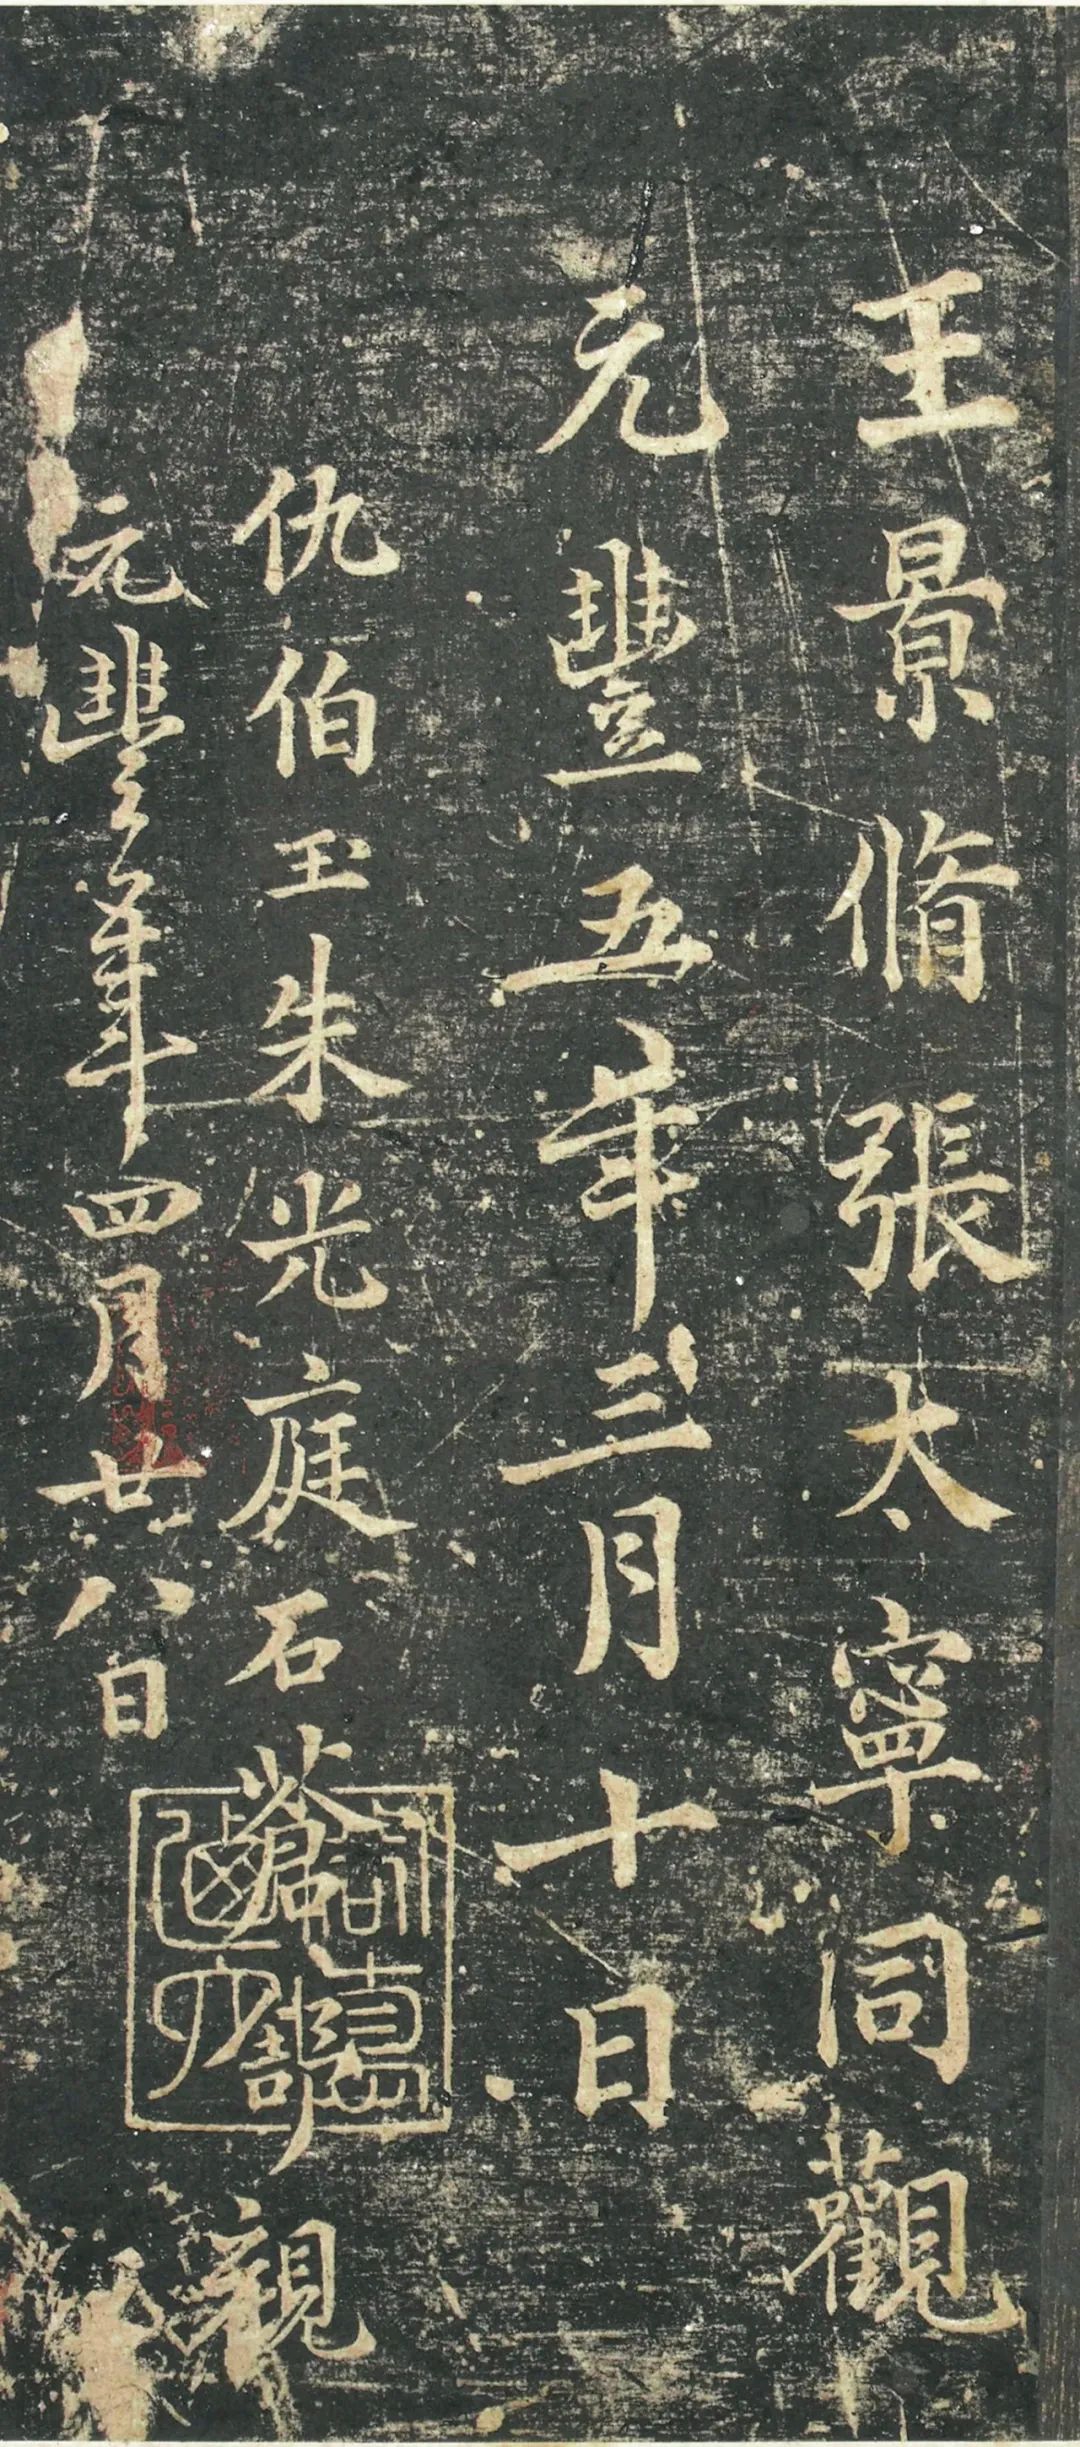 王景脩張太寧同觀
元豐五年三月十日
仇伯玉朱光庭石蒼舒觀
元豐五年四月廿八日